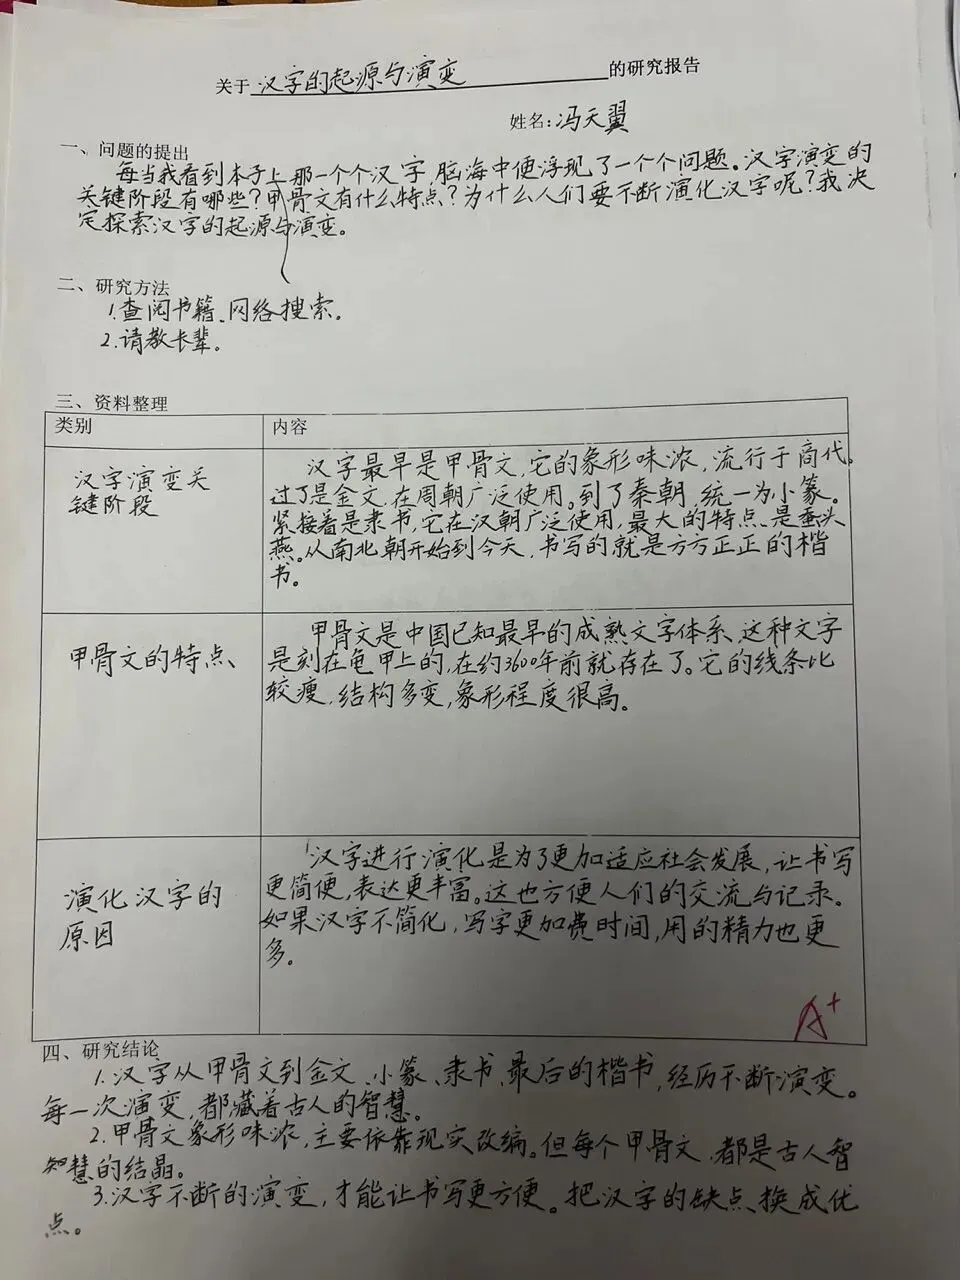 关于 汉字的起源与演变 的研究报告
姓名:冯天翼
一、问题的提出
每当我看到本子上那一个个汉字,脑海中便浮现了一个个问题。汉字演变的
关键阶段有哪些?甲骨文有什么特点?为什么人们要不断演化汉字呢?我决
定探索汉字的起源与演变。
二、研究方法
1.查阅书籍、网络搜索。
2.请教长辈。
三、资料整理
类别 内容
汉字演变关
键阶段
汉字最早是甲骨文,它的象形味浓,流行于商代。
过了是金文,在周朝广泛使用。到了秦朝,统一为小篆。
紧接着是隶书,它在汉朝广泛使用,最大的特点是蚕头
燕。从南北朝开始到今天,书写的就是方方正正的楷
书。
甲骨文的特点
甲骨文是中国已知最早的成熟文字体系、这种文字
是刻在龟甲上的,在约3600年前就存在了。它的线条比
较瘦,结构多变,象形程度很高。
演化汉字的
原因
汉字进行演化是为了更加适应社会发展,让书写
更简便,表达更丰富。这也方便人们的交流与记录。
如果汉字不简化,写字更加费时间,用的精力也更
多。
A+
四、研究结论
1.汉字从甲骨文到金文、小篆、隶书、最后的楷书,经历不断演变。
每一次演变,都藏着古人的智慧。
2.甲骨文象形味浓,主要依靠现实改编。但每个甲骨文,都是古人智
知慧的结晶。
3.汉字不断的演变,才能让书写更方便。把汉字的缺点换成优
点。